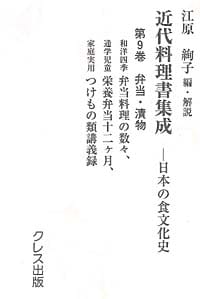 江原 絢子 編・解説
近代料理書集成
―日本の食文化史
第9巻 弁当・漬物
和洋四季 弁当料理の数々、
通学児童 栄養弁当十二ヶ月、
家庭実用 つけもの類講義録
クレス出版